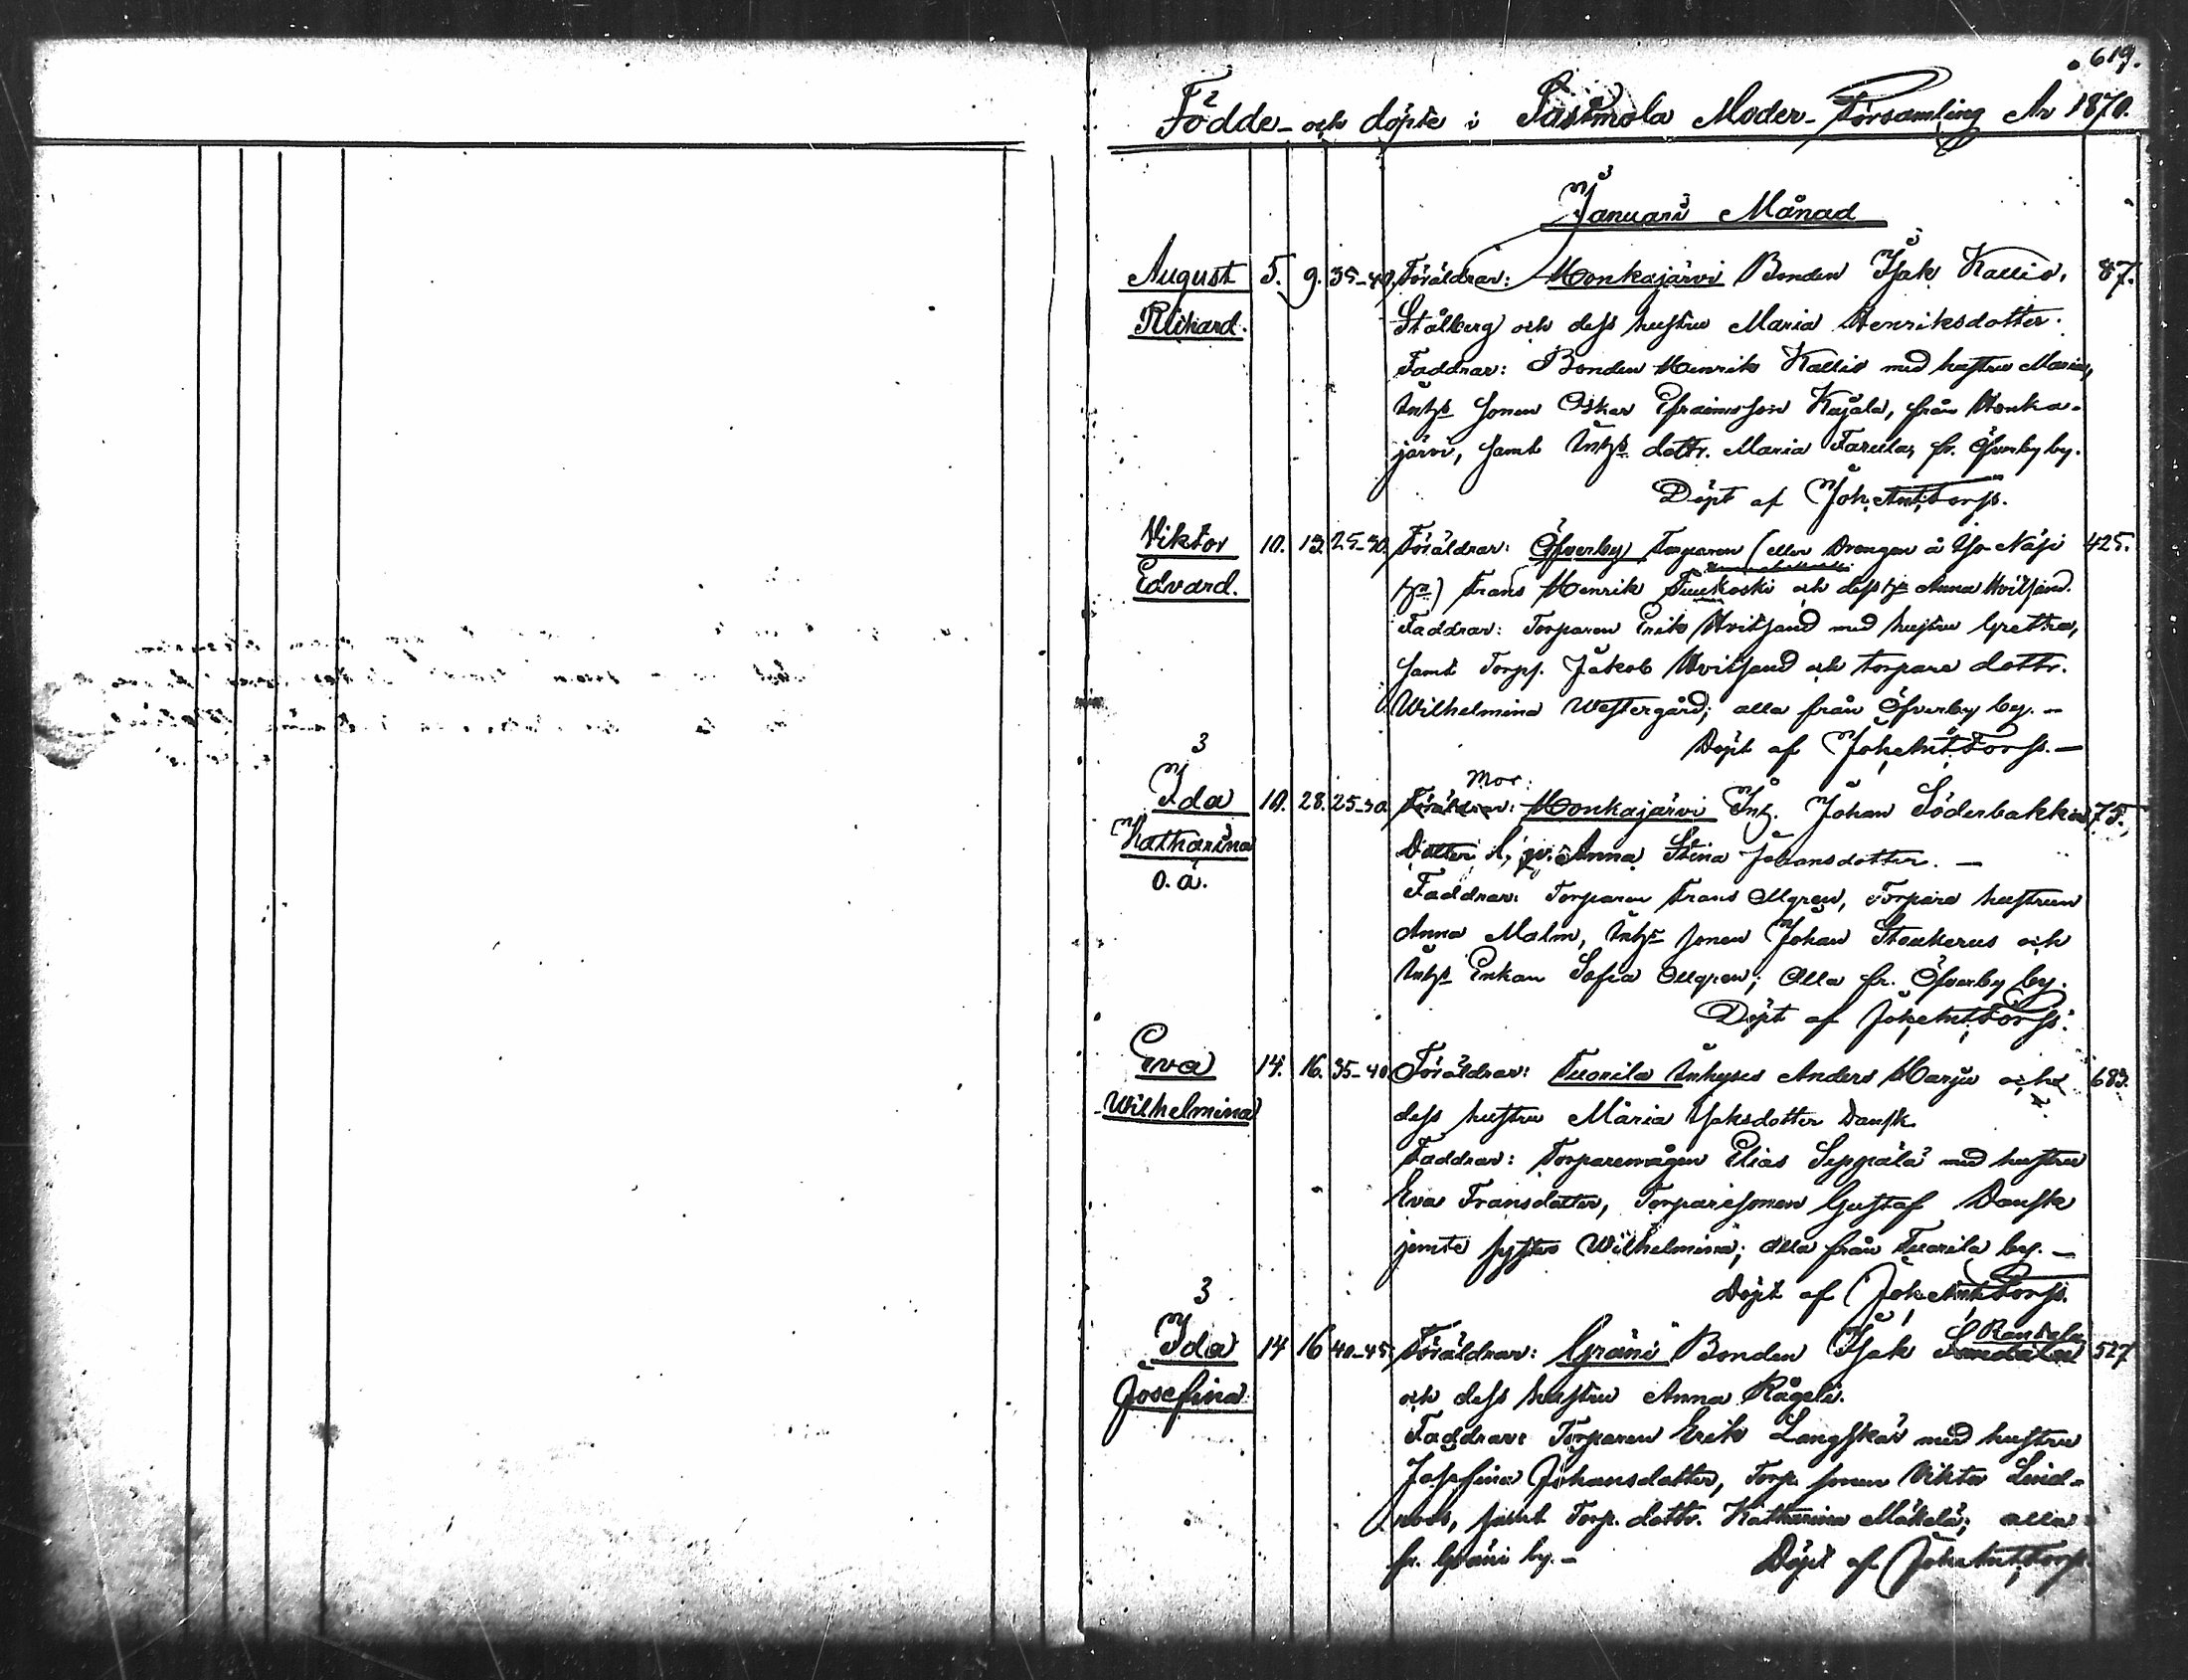 619.
Födde och döpte i Sastmola Moder-Församling År 1870.
Januari Månad
August 5. 9. 35-40. Föräldrar: Honkajärvi Bonden Isak Kallio, 87.
Rikhard. Stålberg och dess hustru Maria Henriksdotter.
Faddrar: Bonden Henrik Kallio med hustru Maria,
Inhs sonen Oskar Efraimsson Kajala, från Honka-
järvi, samt Inhs dottr. Maria Farula, fr. Öfverby by.
Döpt af Joh. Ant. Forss.
Viktor 10. 13. 25-30. Föräldrar: Öfverby Torparen (eller Drengen å Yso Näsi 425.
Edvard. Frans Henrik Tuukoski och dess Anna Hvitsand.
Faddrar: Torparen Erik Hvitsand med hustru Gretha,
samt Torps. Jakob Hvitsand och torpare dottr.
Wilhelmina Westergård; alla från Öfverby by. —
Döpt af Joh. Ant. Forss. —
3
Mor:
Ida 10. 28. 25-30. Föräldrar: Honkajärvi Inh. Johan Söderbakka 75.
Katharina Dotter Anna Stina Johansdotter. —
o. ä.
Faddrar: Torparen Frans Allgren, Torpare hustrun
Anna Malm, Inhs sonen Johan Stenkerus och
Inhs Enkan Sofia Allgren; Alla fr. Öfverby by.
Döpt af Joh. Ant. Forss.
Eva 14. 16. 35-40. Föräldrar: Tuorila Inhyses Anders Harju och 683.
Wilhelmina dess hustru Maria Isaksdotter Dansk.
Faddrar: Torparemågen Elias Seppälä med hustru
Eva Fransdotter, Torparesonen Gustaf Dansk
jemte syster Wilhelmina; alla från Tuorila by. —
Döpt af Joh. Ant. Forss.
3
Rantala
Ida 14 16 40-45. Föräldrar: Gräni Bonden Isak 527
Josefina och dess hustru Anna Rågele.
Faddrar: Torparen Erik Långskär med hustru
Josefina Johansdotter, Torp. sonen Viktor Lind-
roos, samt Torp. dottr. Katharina Mäkelä; alla
fr. Gräni by. — Döpt af Joh. Ant. Forss.